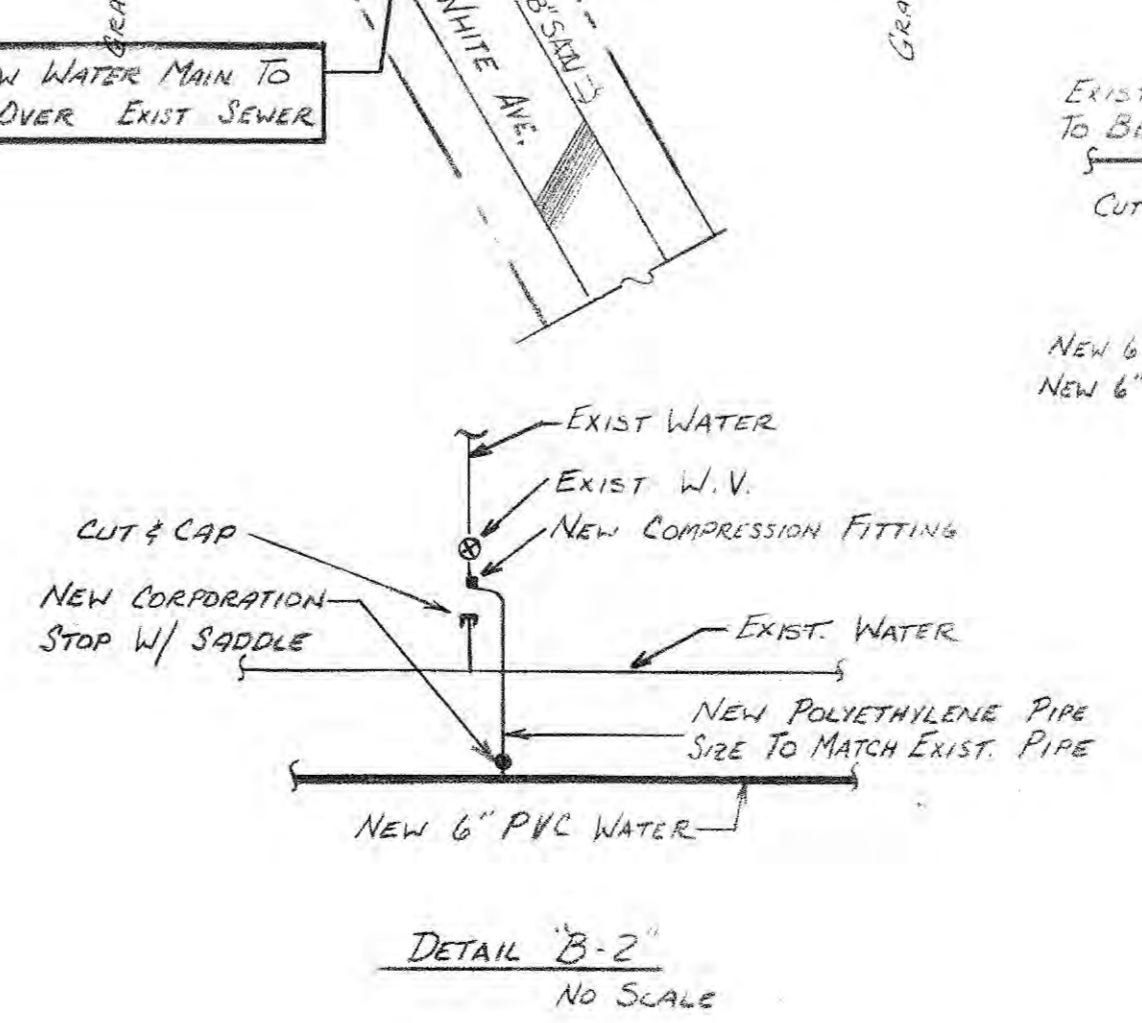 GRA
W WATER MAIN TO
OVER EXIST SEWER
WHITE AVE.
8" SAN
GRA
EXIST
TO BE
CUT
NEW 6
NEW 6"
EXIST WATER
EXIST W.V.
NEW COMPRESSION FITTING
CUT & CAP
NEW CORPORATION
STOP W/ SADDLE
EXIST. WATER
NEW POLYETHYLENE PIPE
SIZE TO MATCH EXIST. PIPE
NEW 6" PVC WATER
DETAIL "B-2"
NO SCALE